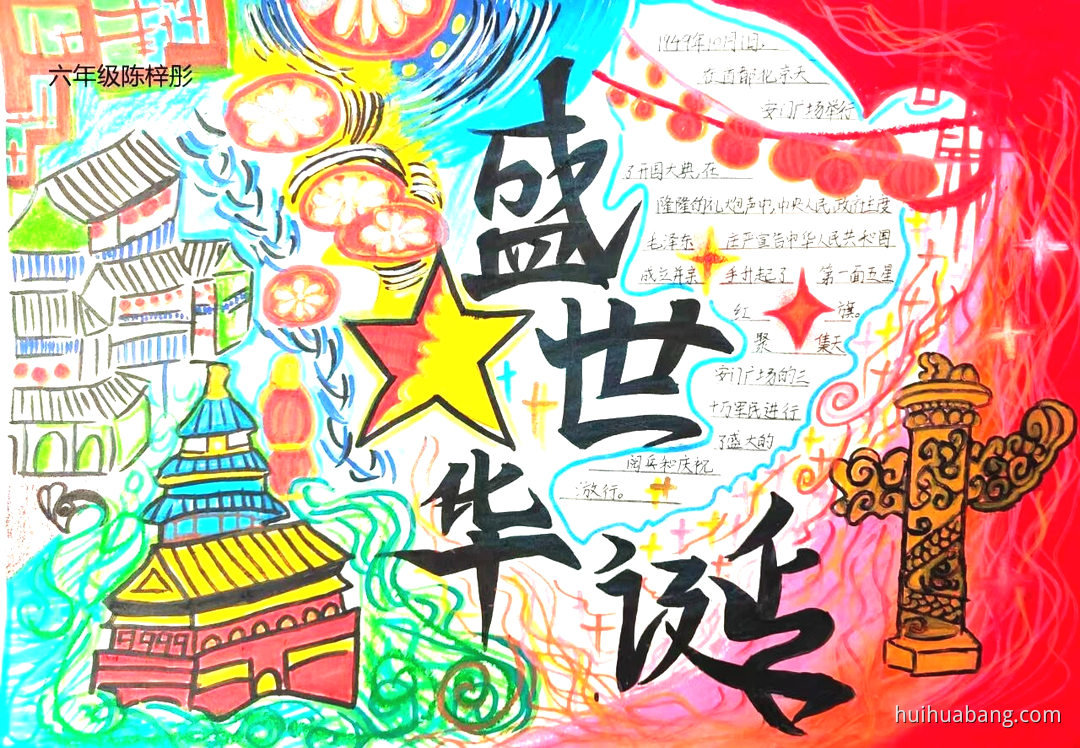 六年级陈梓彤
盛世
华诞
1949年10月1日,
在首都北京天
安门广场举行
了开国大典,在
隆隆的礼炮声中,中央人民政府主席
毛泽东 庄严宣告中华人民共和国
成立并亲 手升起了 第一面五星
红 旗。
聚 集天
安门广场的三
十万军民进行
了盛大的
阅兵和庆祝
游行。
huihuabang.com